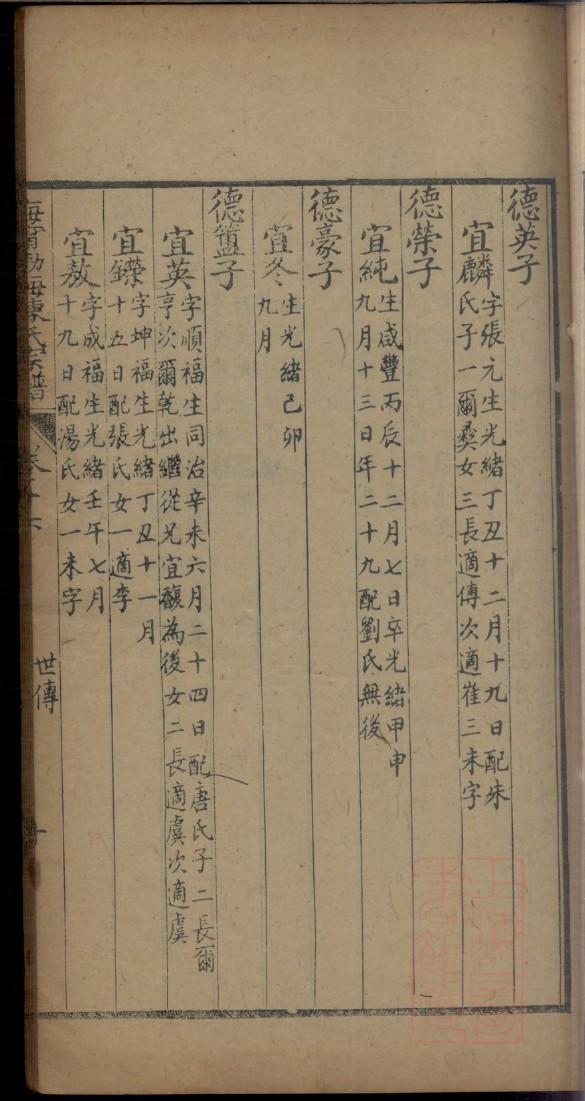 德英子
宜麟字張元生光緒丁丑十二月十九日配朱
氏子一爾彝女三長適傅次適崔三未字
德榮子
宜純生咸豐丙辰十二月七日卒光緒甲申
九月十三日年二十九配劉氏無後
德豪子
宜冬生光緒己卯
九月
德簠子
宜英字順福生同治辛未六月二十四日配唐氏子二長爾
亨次爾乾出繼從兄宜釀為後女二長適虞次適虞
宜鑅字坤福生光緒丁丑十一月
十五日配張氏女一適李
宜敖字成福生光緒壬午七月
十九日配湯氏女一未字
海甯渤海陳氏宗譜
世傳